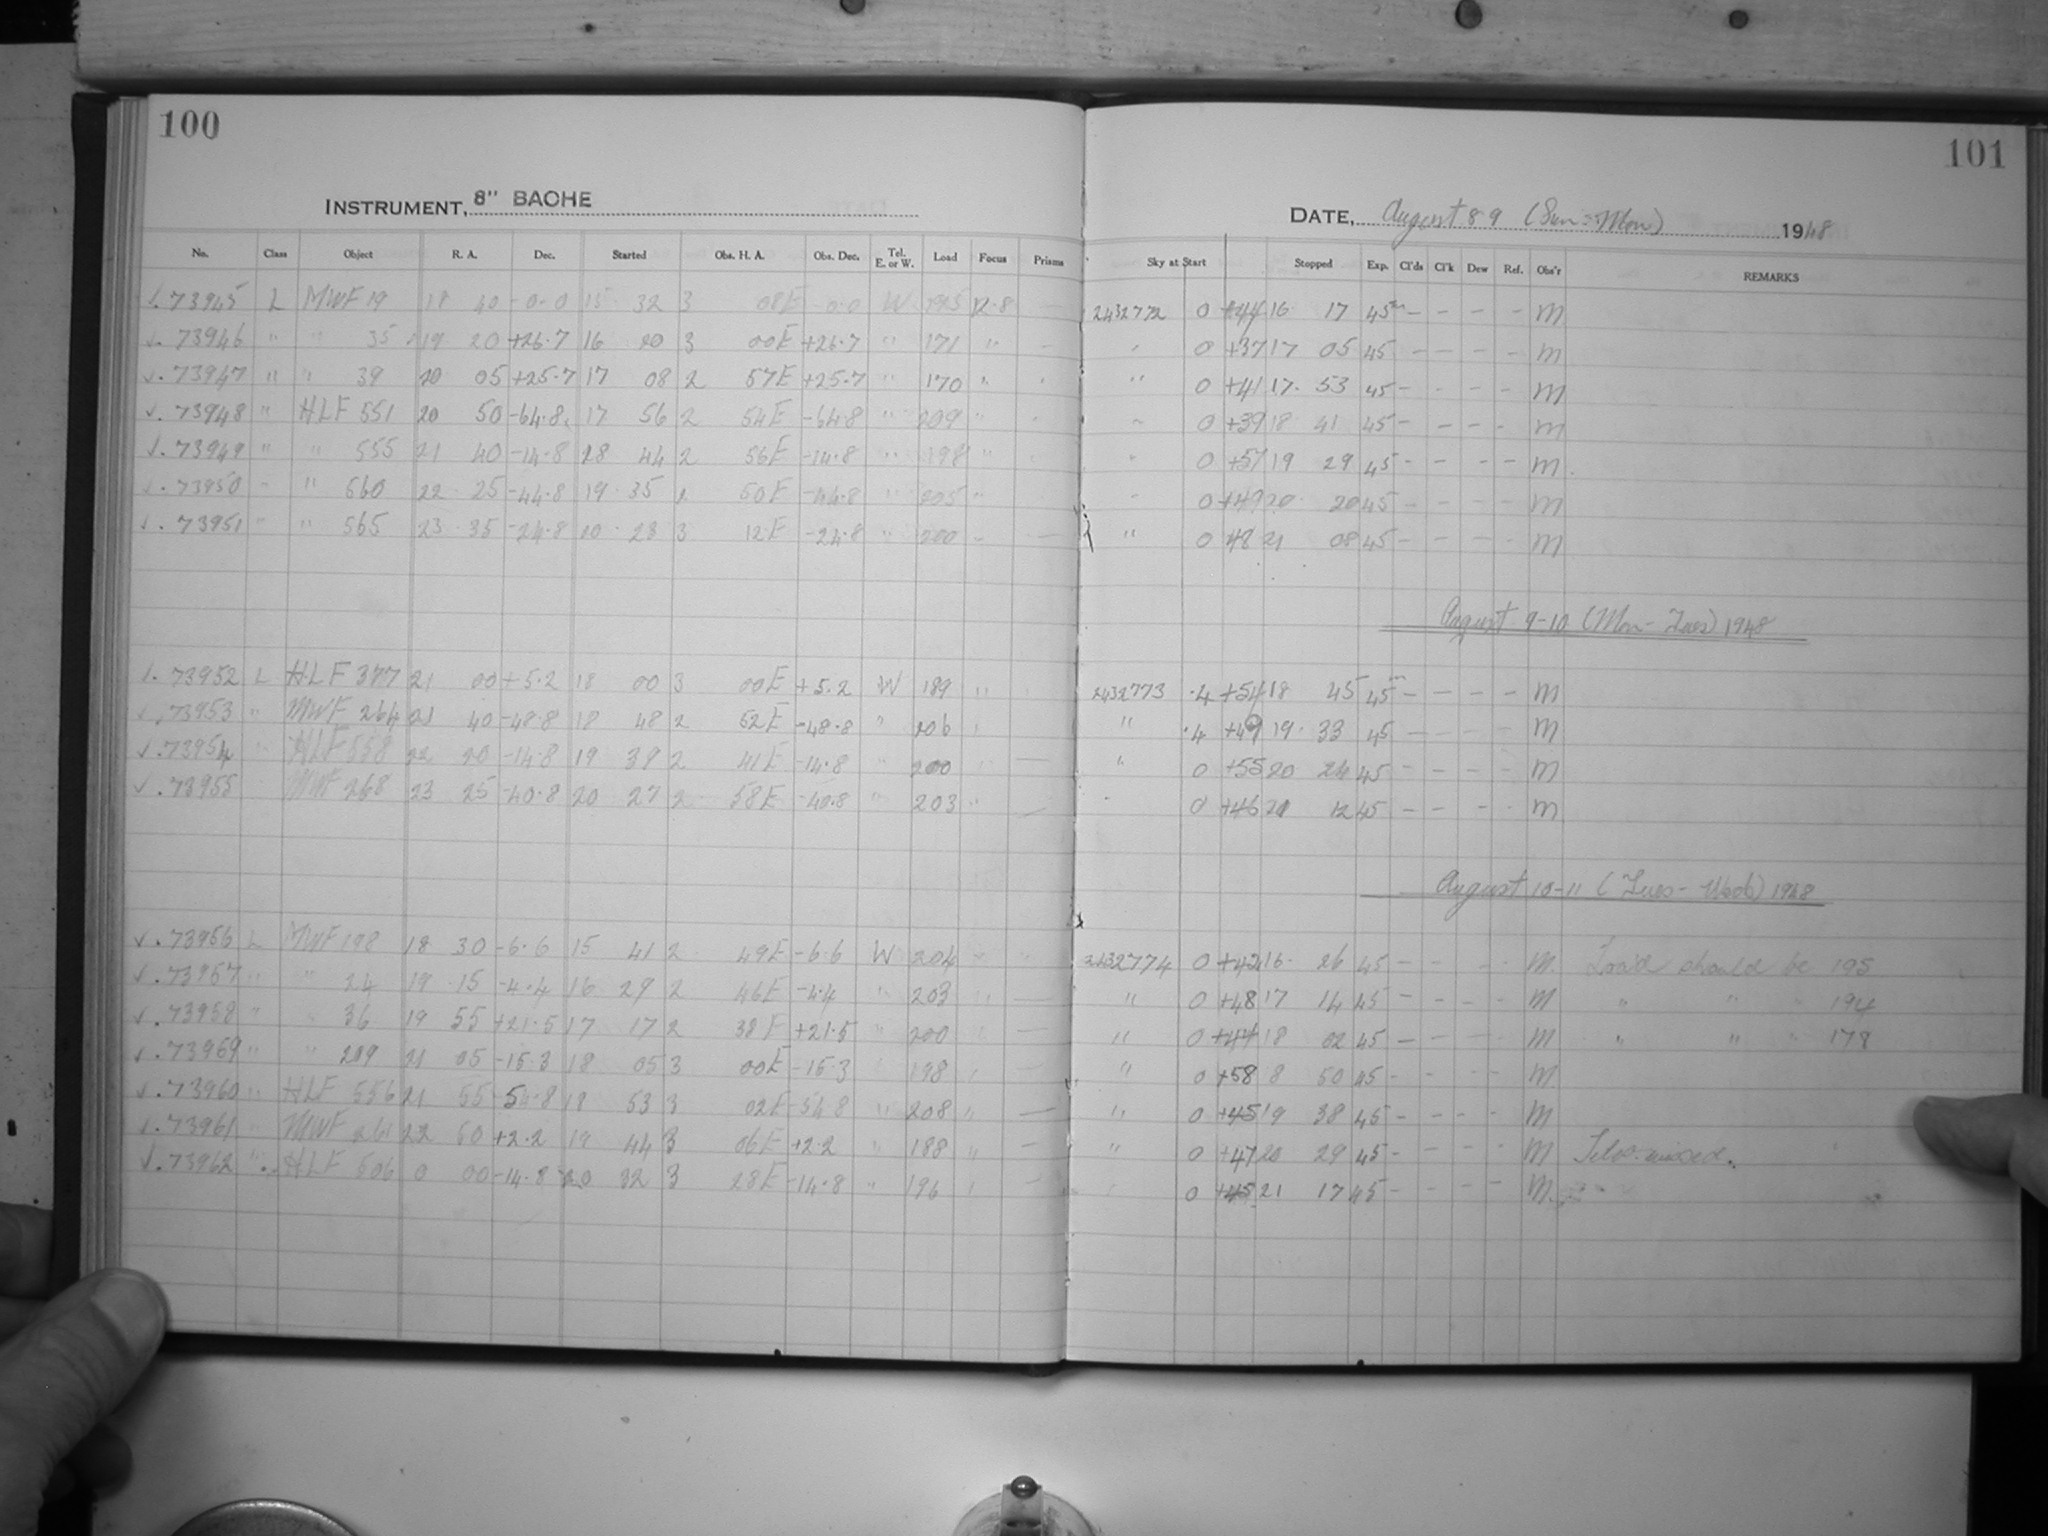 100
101
INSTRUMENT, 8" BACHE
DATE, August 8-9 (Sun-Mon) 1948
No. Class Object R. A. Dec. Started Obs. H. A. Obs. Dec. Tel. E. or W. Load Focus Prisms Sky at Start Stopped Exp. Cl'ds Cl'k Dew Ref. Obs'r REMARKS
√. 73945 L MWF 19 18 40 -0.0 15 32 3 08E 0.0 W 195 12.8 — 2432772 0 +44 16 17 45m — — — — M
√. 73946 " " 35 19 20 +26.7 16 20 3 00E +26.7 " 171 " - " 0 +37 17 05 45 — — — — M
√. 73947 " " 39 20 05 +25.7 17 08 2 57E +25.7 " 170 " - " 0 +41 17 53 45 — — — — M
√. 73948 " HLF 551 20 50 -64.8 17 56 2 54E -64.8 " 209 " - " 0 +39 18 41 45 — — — — M
√. 73949 " " 555 21 40 -14.8 18 44 2 56E -14.8 " 198 " " 0 +51 19 29 45 — — — — M
√. 73950 " " 560 22 25 -44.8 19 35 2 50E -44.8 " 205 " " 0 +49 20 20 45 — — — — M
√. 73951 " " 565 23 35 -24.8 20 23 3 12E -24.8 " 200 " — " 0 48 21 08 45 — — — — M
August 9-10 (Mon-Tues) 1948
√. 73952 L HLF 377 21 00 +5.2 18 00 3 00E +5.2 W 189 " 2432773 .4 +54 18 45 45m — — — — M
√. 73953 " MWF 264 21 40 -48.8 18 48 2 52E -48.8 " 206 " " .4 +49 19 33 45 — — — — M
√. 73954 " HLF 558 22 20 -14.8 19 39 2 41E -14.8 " 200 " — " 0 +55 20 24 45 — — — — M
√. 73955 MWF 268 23 25 -40.8 20 27 2 58E -40.8 " 203 " — " 0 +46 21 12 45 — — — — M
August 10-11 (Tues-Wed) 1948
√. 73956 L MWF 198 18 30 -6.6 15 41 2 49E -6.6 W 204 " " 2432774 0 +42 16 26 45 — — — — M. Load should be 195
√. 73957 " " 24 19 15 -4.4 16 29 2 46E -4.4 " 203 " — " 0 +48 17 14 45 — — — — M " " " 194
√. 73958 " " 36 19 55 +21.5 17 17 2 38E +21.5 " 200 " — " 0 +44 18 02 45 — — — — M " " " 178
√. 73959 " " 209 21 05 -15.3 18 05 3 00E -15.3 " 198 " — " 0 +58 8 50 45 — — — — M
√. 73960 " HLF 556 21 55 -54.8 18 53 3 02E -54.8 " 208 " — " 0 +45 19 38 45 — — — — M
√. 73961 " MWF 261 22 50 +2.2 19 44 3 06E +2.2 " 188 " — " 0 +47 20 29 45 — — — — M
√. 73962 " HLF 506 0 00 -14.8 20 32 3 28E -14.8 " 196 " — 0 +45 21 17 45 — — — — M.